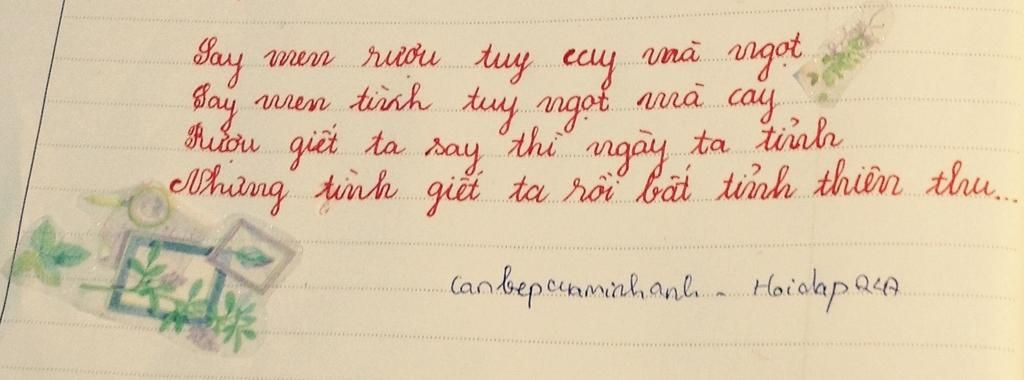 Say men rượu tuy cay mà ngọt
Say men tình tuy ngọt mà cay
Rượu giết ta say thì ngày ta tỉnh
Nhưng tình giết ta rồi bất tỉnh thiên thu...
canbepcuaminhanh - Hoidap247